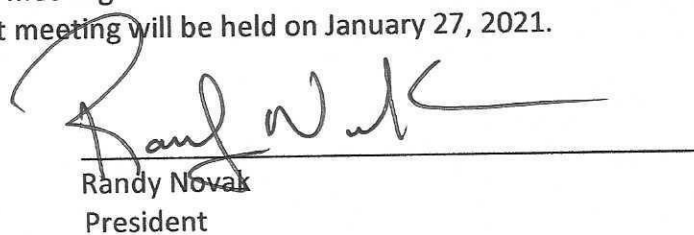 t meeting will be held on January 27, 2021.
Randy Novak
Randy Novak
President